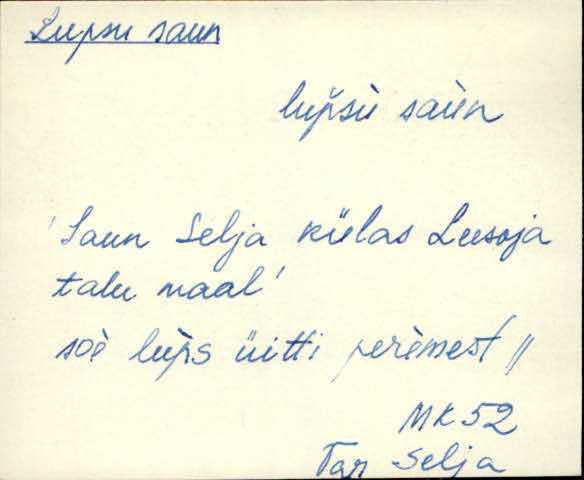 Lupsu saun
lupsù saùn
'Saun Selja külas Leesoja
talu maal'
soè lùps üitti perèmest //
MK 52
Tor Selja